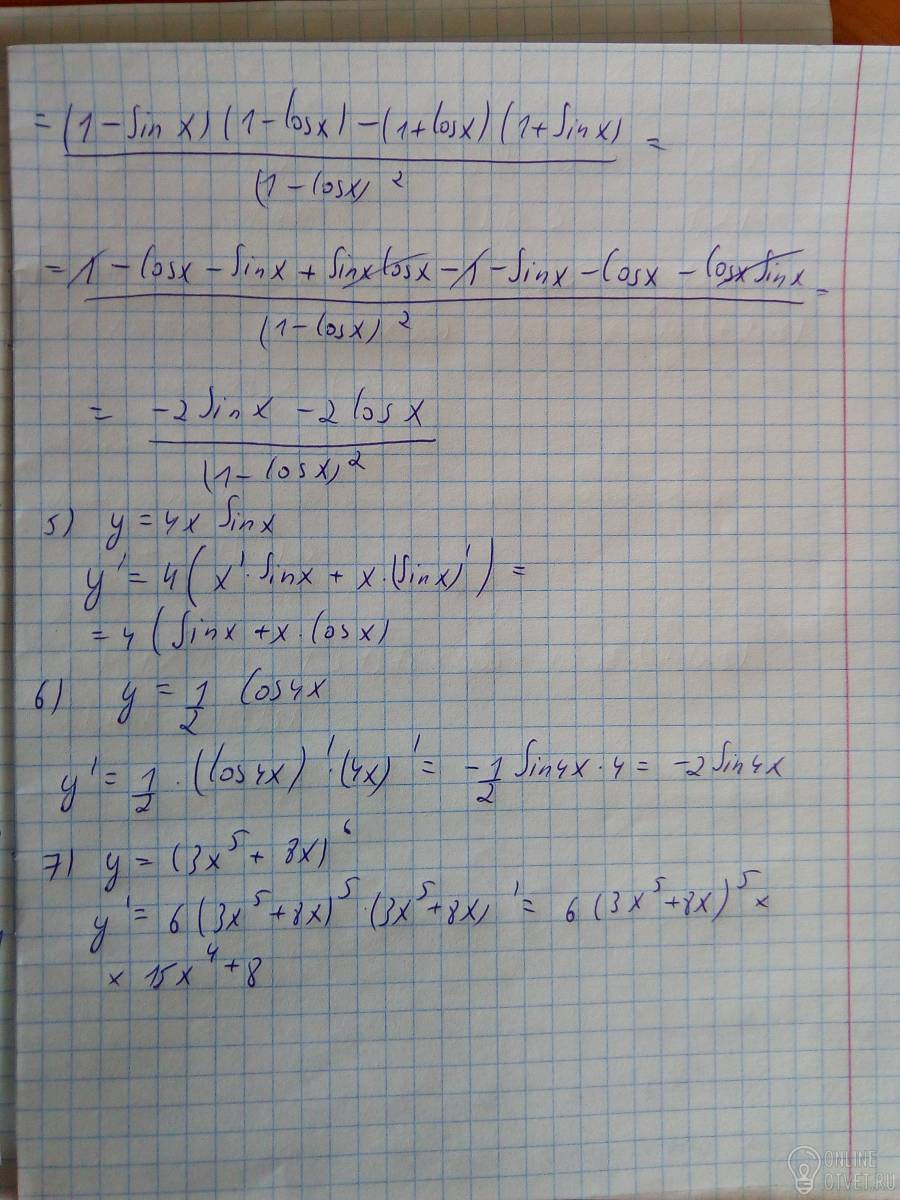 = (1 - sin x) (1 - cosx) - (1 + cosx) (1 + sinx) =
(1 - cosx) ²
= 1 - cosx - sinx + sinxcosx - 1 - sinx - cosx - cosxsinx =
(1 - cosx) ²
= -2 sinx - 2 cosx
(1 - cosx)²
5) y = 4x sinx
y' = 4 ( x' · sinx + x · (sinx)' ) =
= 4 (sinx + x · cosx)
6) y = 1/2 cos4x
y' = 1/2 · (cos4x)' · (4x)' = -1/2 sin4x · 4 = -2 sin4x
7) y = (3x⁵ + 8x)⁶
y' = 6 (3x⁵ + 8x)⁵ · (3x⁵ + 8x)' = 6 (3x⁵ + 8x)⁵ ×
× 15x⁴ + 8
ONLINE
OTVET.RU